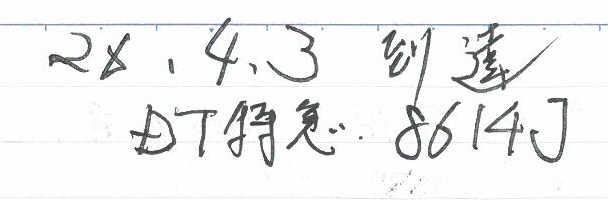 28.4.3 到達
DT特急.8614J